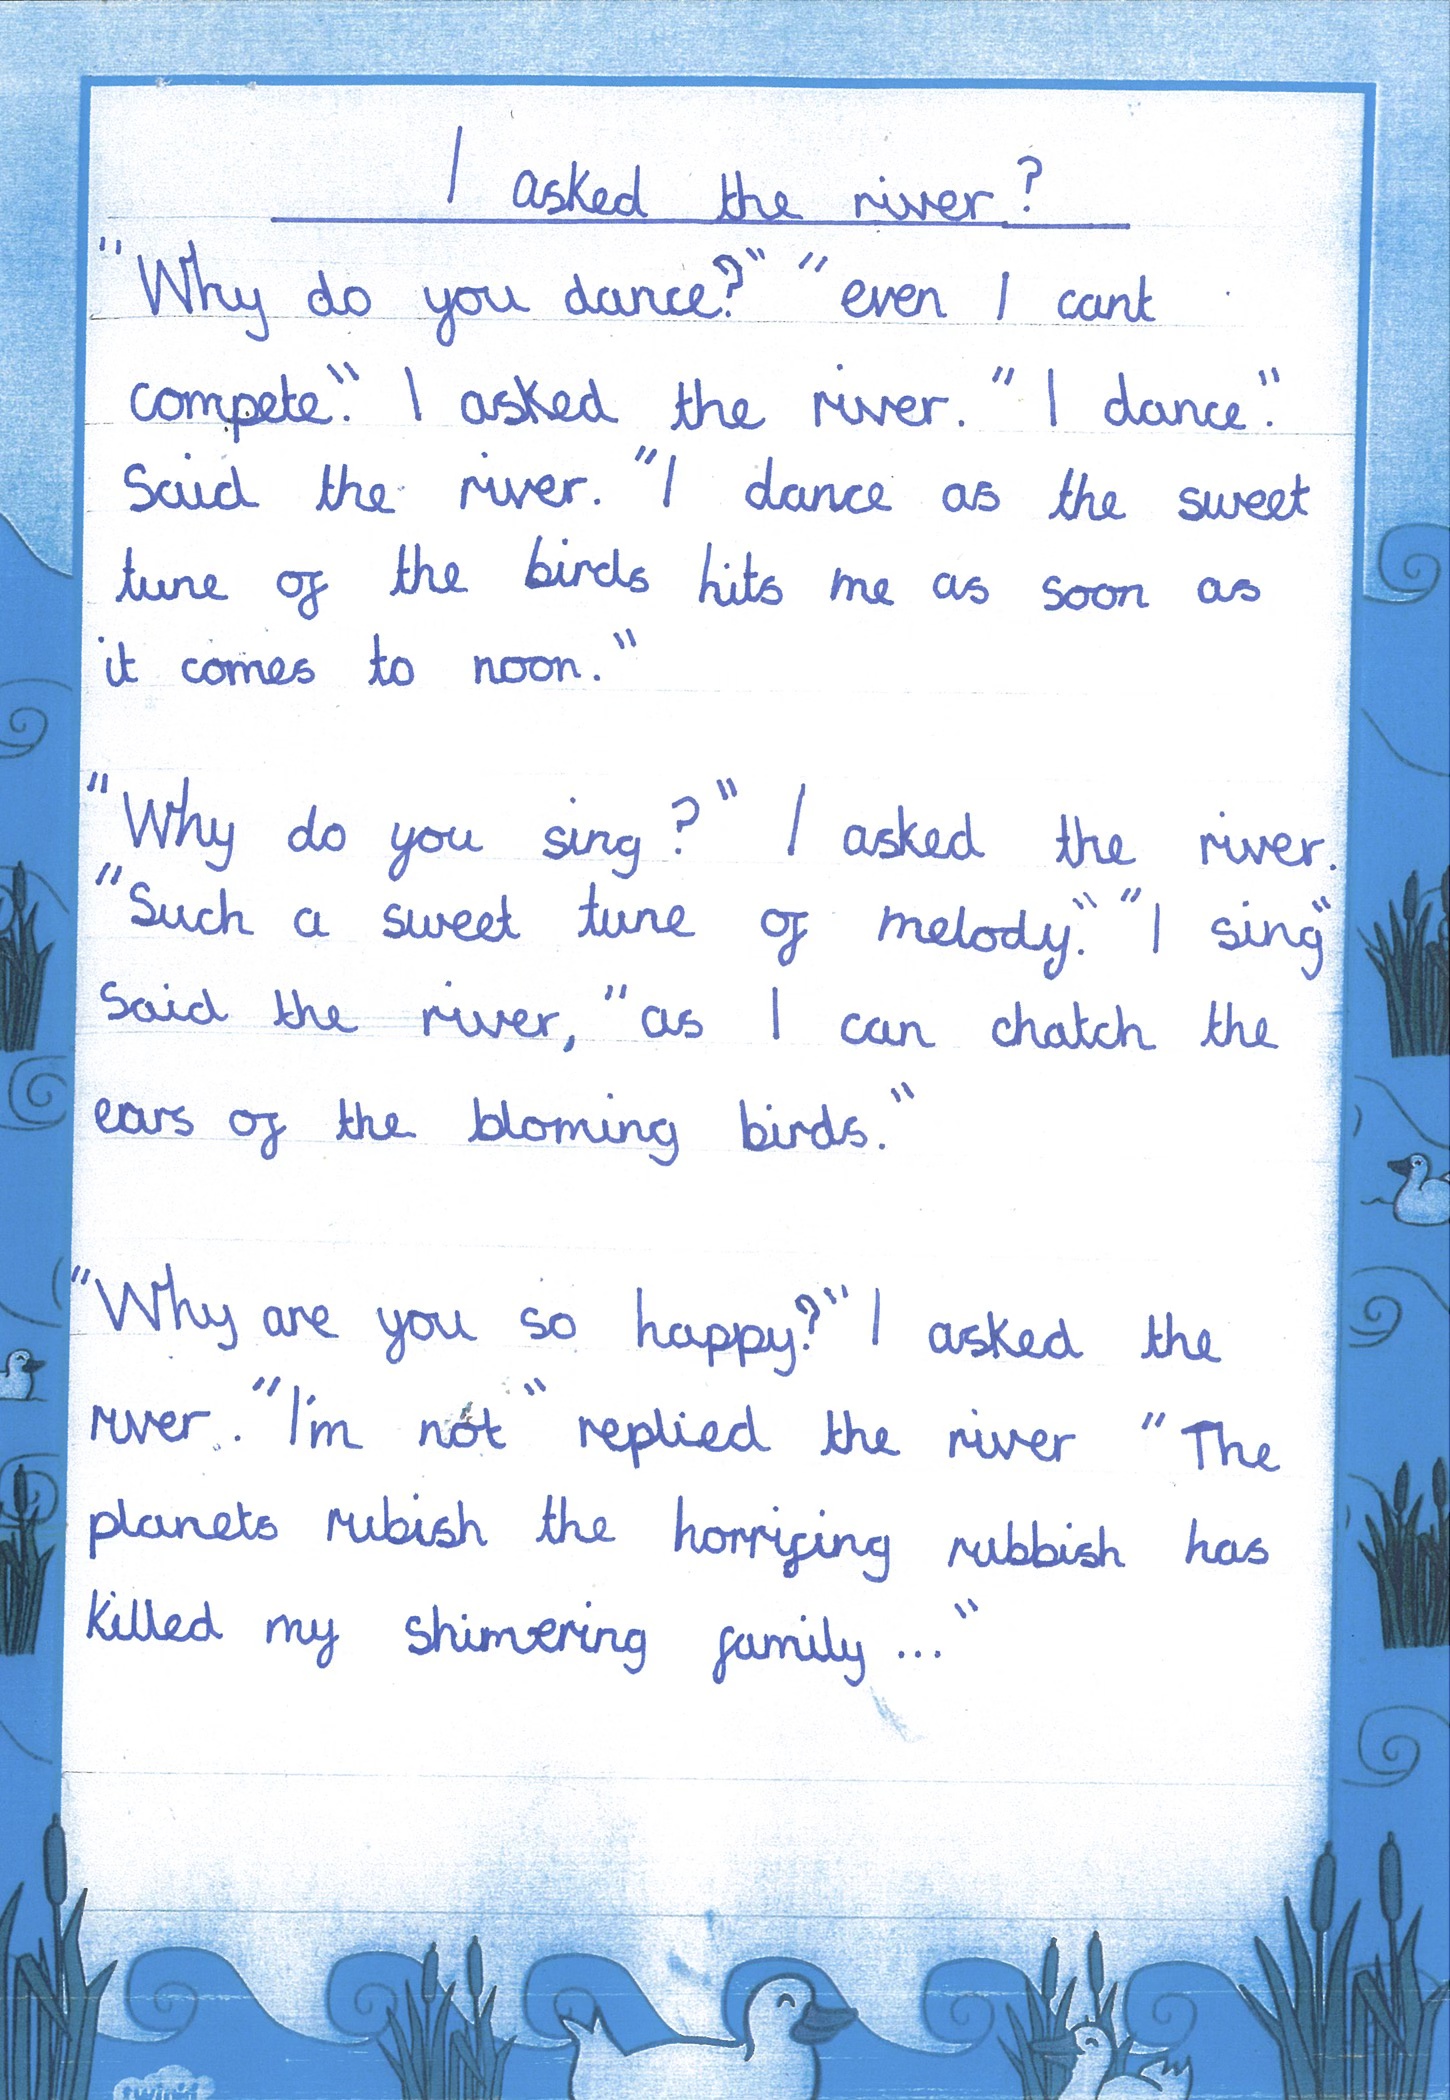 I asked the river?
"Why do you dance?" "even I cant
compete." I asked the river. "I dance."
Said the river. "I dance as the sweet
tune of the birds hits me as soon as
it comes to noon."
"Why do you sing?" I asked the river.
"Such a sweet tune of melody." "I sing"
Said the river, "as I can chatch the
ears of the bloming birds."
"Why are you so happy?" I asked the
river. "I'm not" replied the river "The
planets rubish the horrifing rubbish has
killed my shimering family..."
twinkl